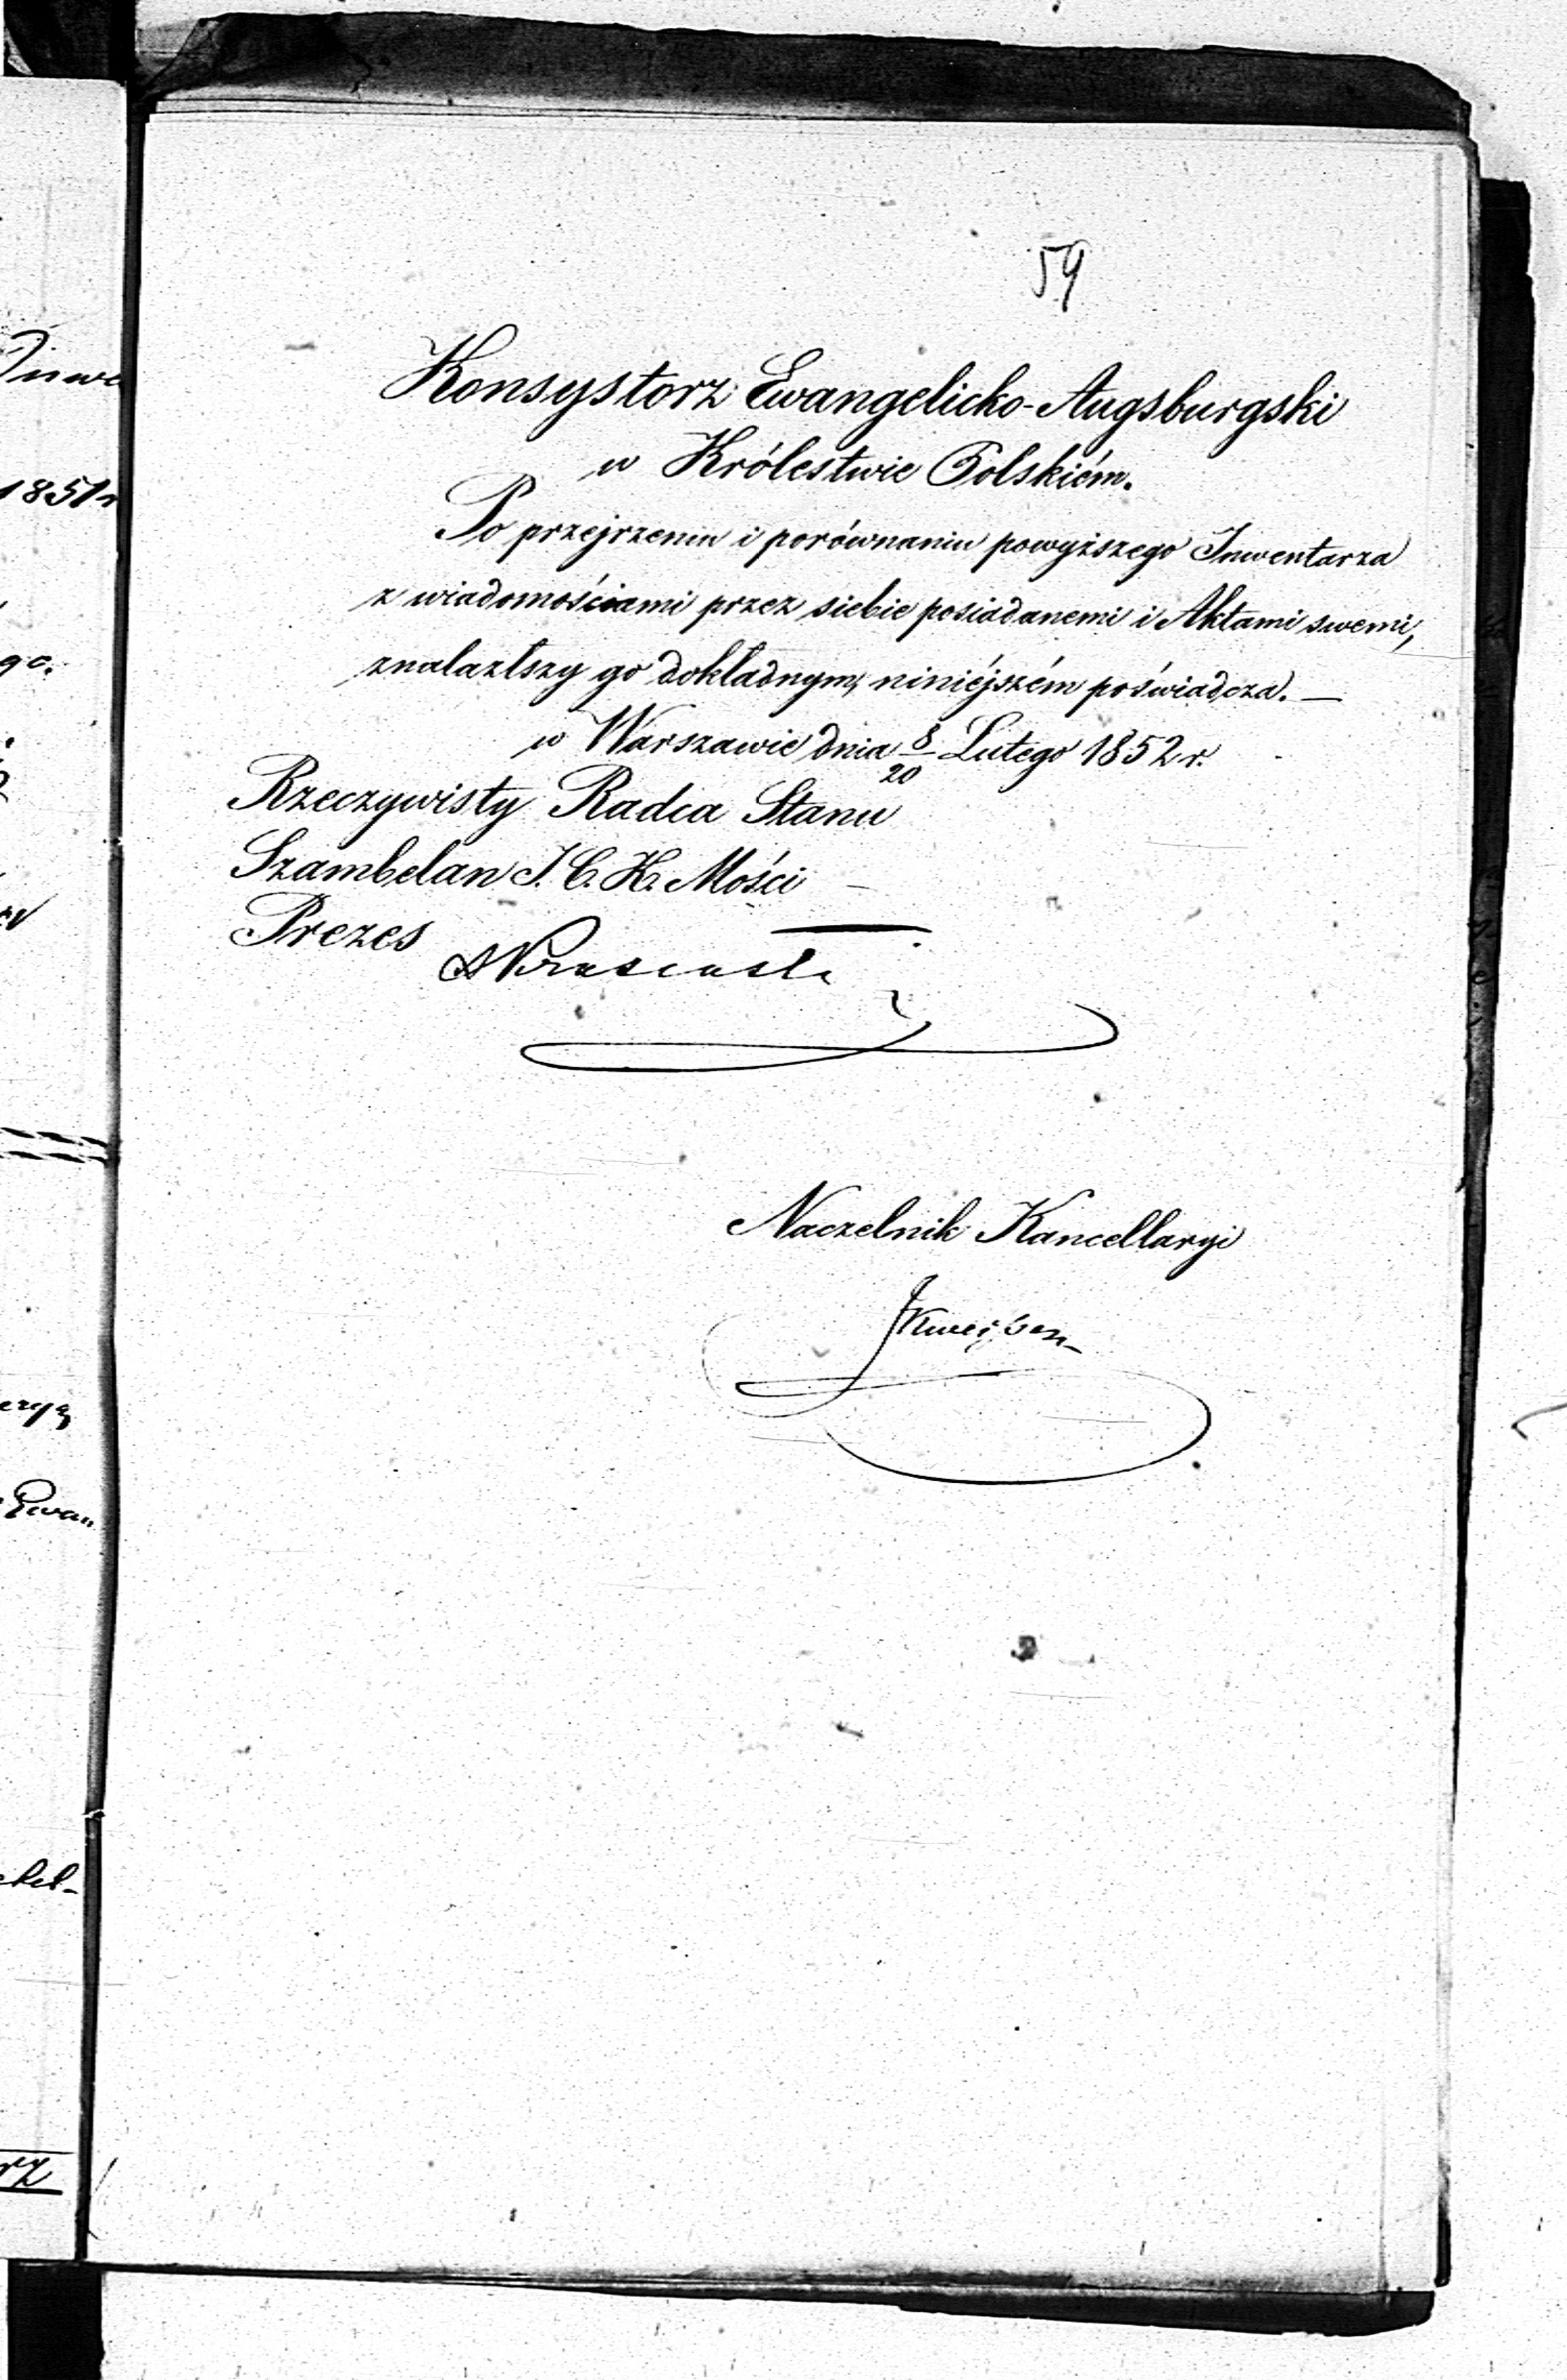 59
Konsystorz Ewangelicko-Augsburgski
w Królestwie Polskiém.
Po przejrzeniu i porównaniu powyższego Inwentarza
z wiadomościami przez siebie posiadanemi i Aktami swemi,
znalazłszy go dokładnym, niniéjszém poświadcza. —
w Warszawie dnia 8/20 Lutego 1852 r.
Rzeczywisty Radca Stanu
Szambelan J. C. K. Mości
Prezes
Naczelnik Kancellaryi
1851 r